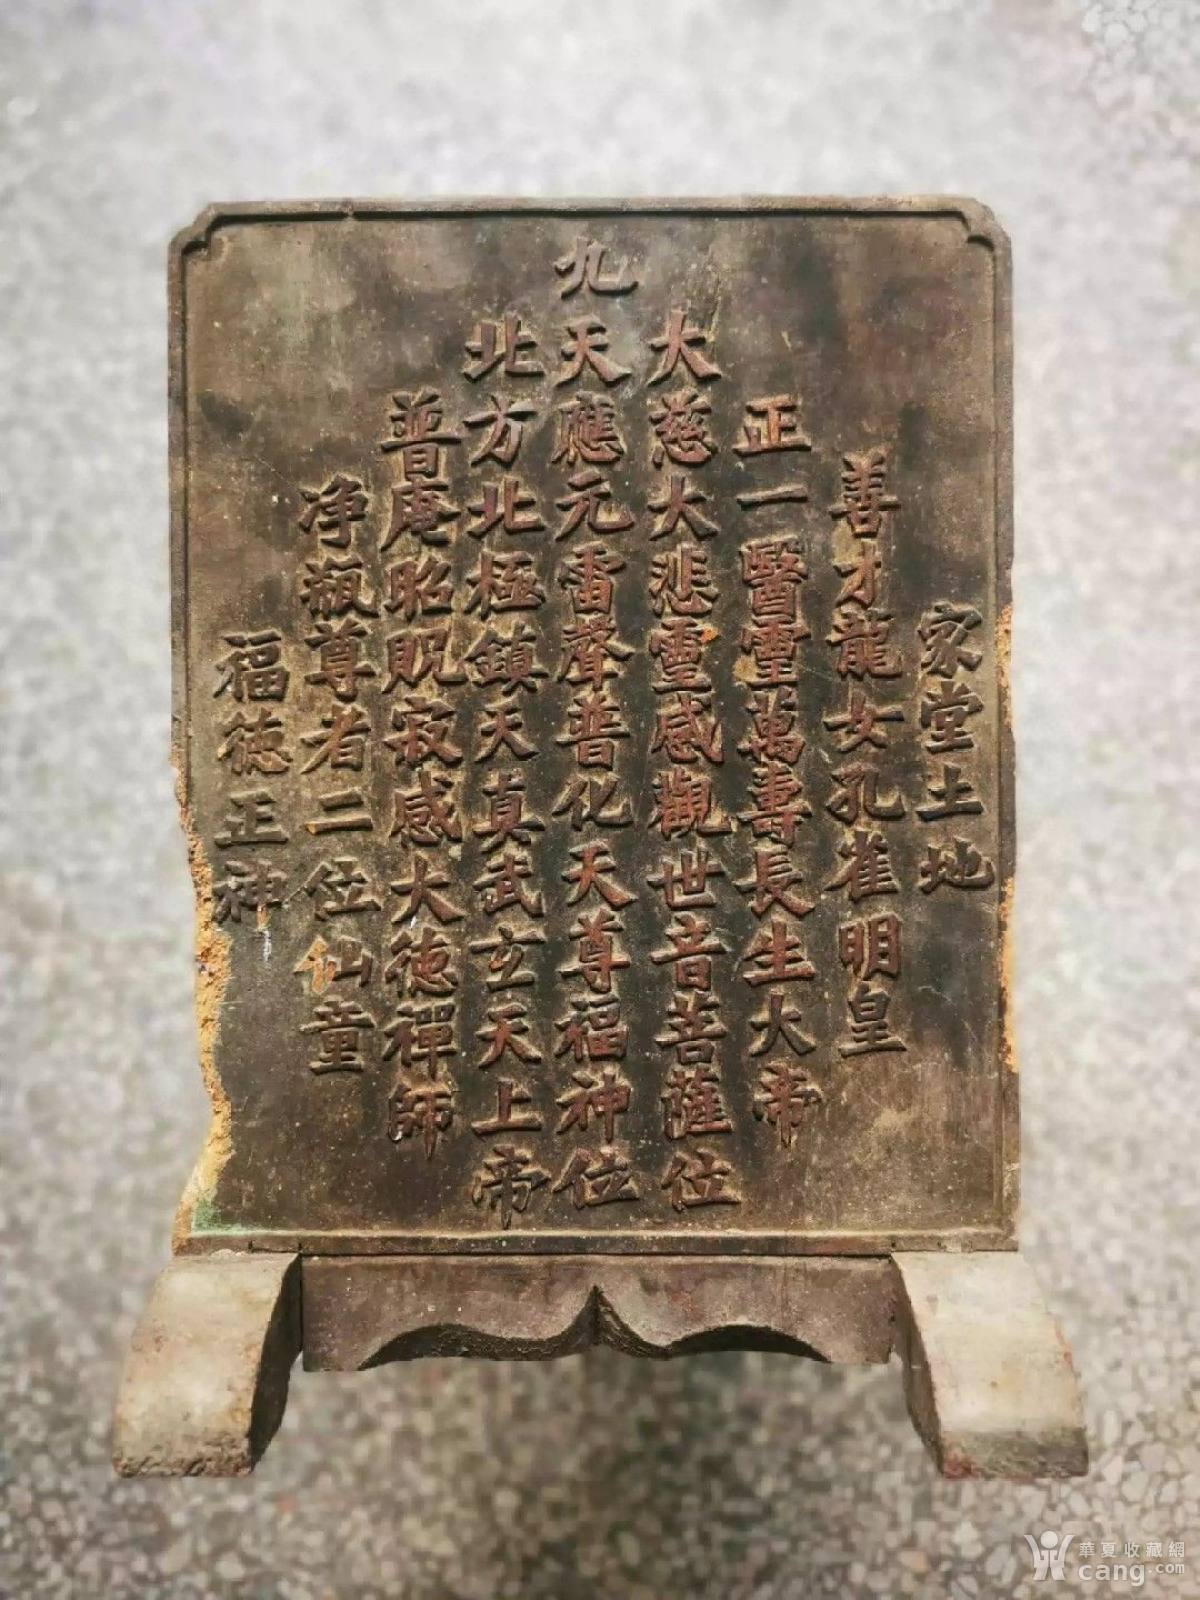 家堂土地
善才龍女孔雀明皇
正一醫靈萬壽長生大帝
大慈大悲靈感觀世音菩薩位
九天應元雷聲普化天尊福神位
北方北極鎮天真武玄天上帝
普庵昭貺寂感大德禪師
净瓶尊者二位仙童
福德正神
華夏收藏網
cang.com